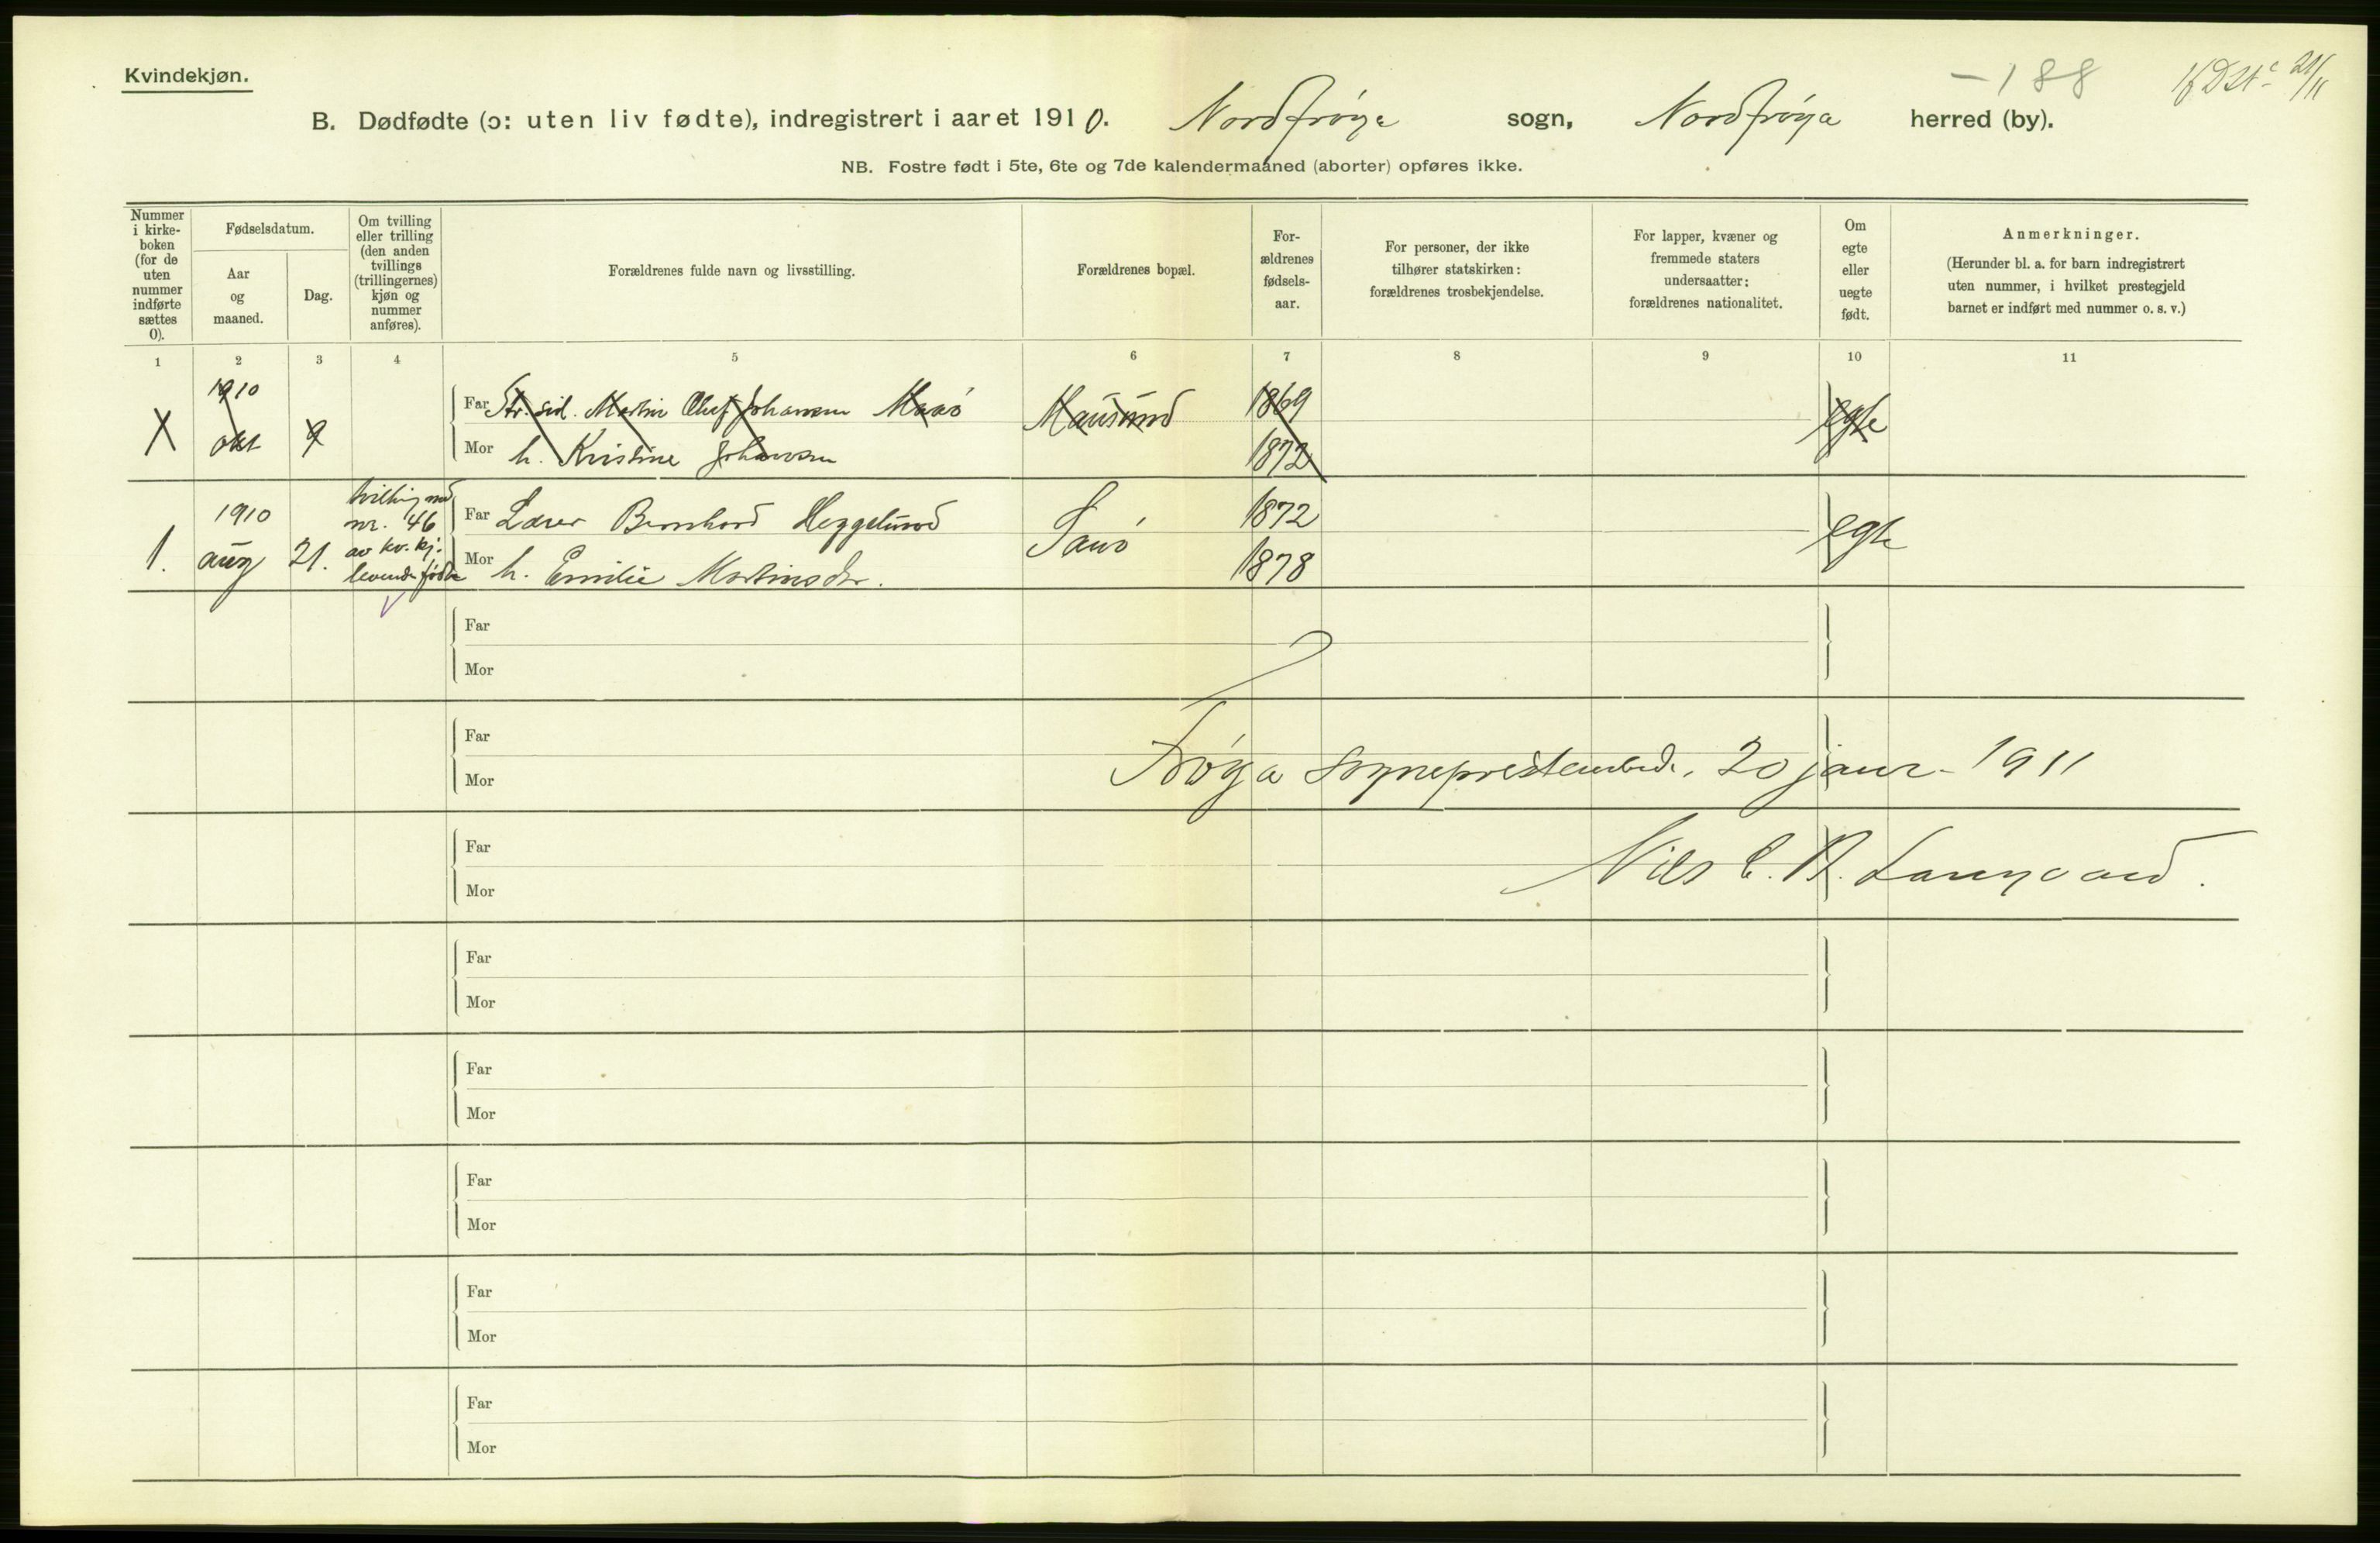 Kvindekjøn.
- 188
B. Dødfødte (ɔ: uten liv fødte), indregistrert i aaret 1910. Nordfrøya sogn, Nordfrøya herred (by).
NB. Fostre født i 5te, 6te og 7de kalendermaaned (aborter) opføres ikke.
Nummer
i kirke-
boken
(for de
uten
nummer
indførte
sættes
0).
Fødselsdatum.
Aar
og
maaned.
Dag.
Om tvilling
eller trilling
(den anden
tvillings
(trillingernes)
kjøn og
nummer
anføres).
Forældrenes fulde navn og livsstilling.
Forældrenes bopæl.
For-
ældrenes
fødsels-
aar.
For personer, der ikke
tilhører statskirken:
forældrenes trosbekjendelse.
For lapper, kvæner og
fremmede staters
undersaatter:
forældrenes nationalitet.
Om
egte
eller
uegte
født.
Anmerkninger.
(Herunder bl. a. for barn indregistrert
uten nummer, i hvilket prestegjeld
barnet er indført med nummer o. s. v.)
1 2 3 4 5 6 7 8 9 10 11
1910
okt 9
Far Str. sid. Martin Oluf Johansen Maasø Mausund 1869 egte
Mor h. Kristine Johansen 1872
1. 1910
aug 21.
tvilling med
nr. 46
av kv. kj.
levende fødte
Far Lærer Bernhard Heggelund Sauø 1872 egte
Mor h. Emilie Martinsdr. 1878
Far
Mor
Far
Mor
Frøya sogneprestembede, 20 januar 1911
Far
Mor
Nils C. B.
Far
Mor
Far
Mor
Far
Mor
Far
Mor
Far
Mor